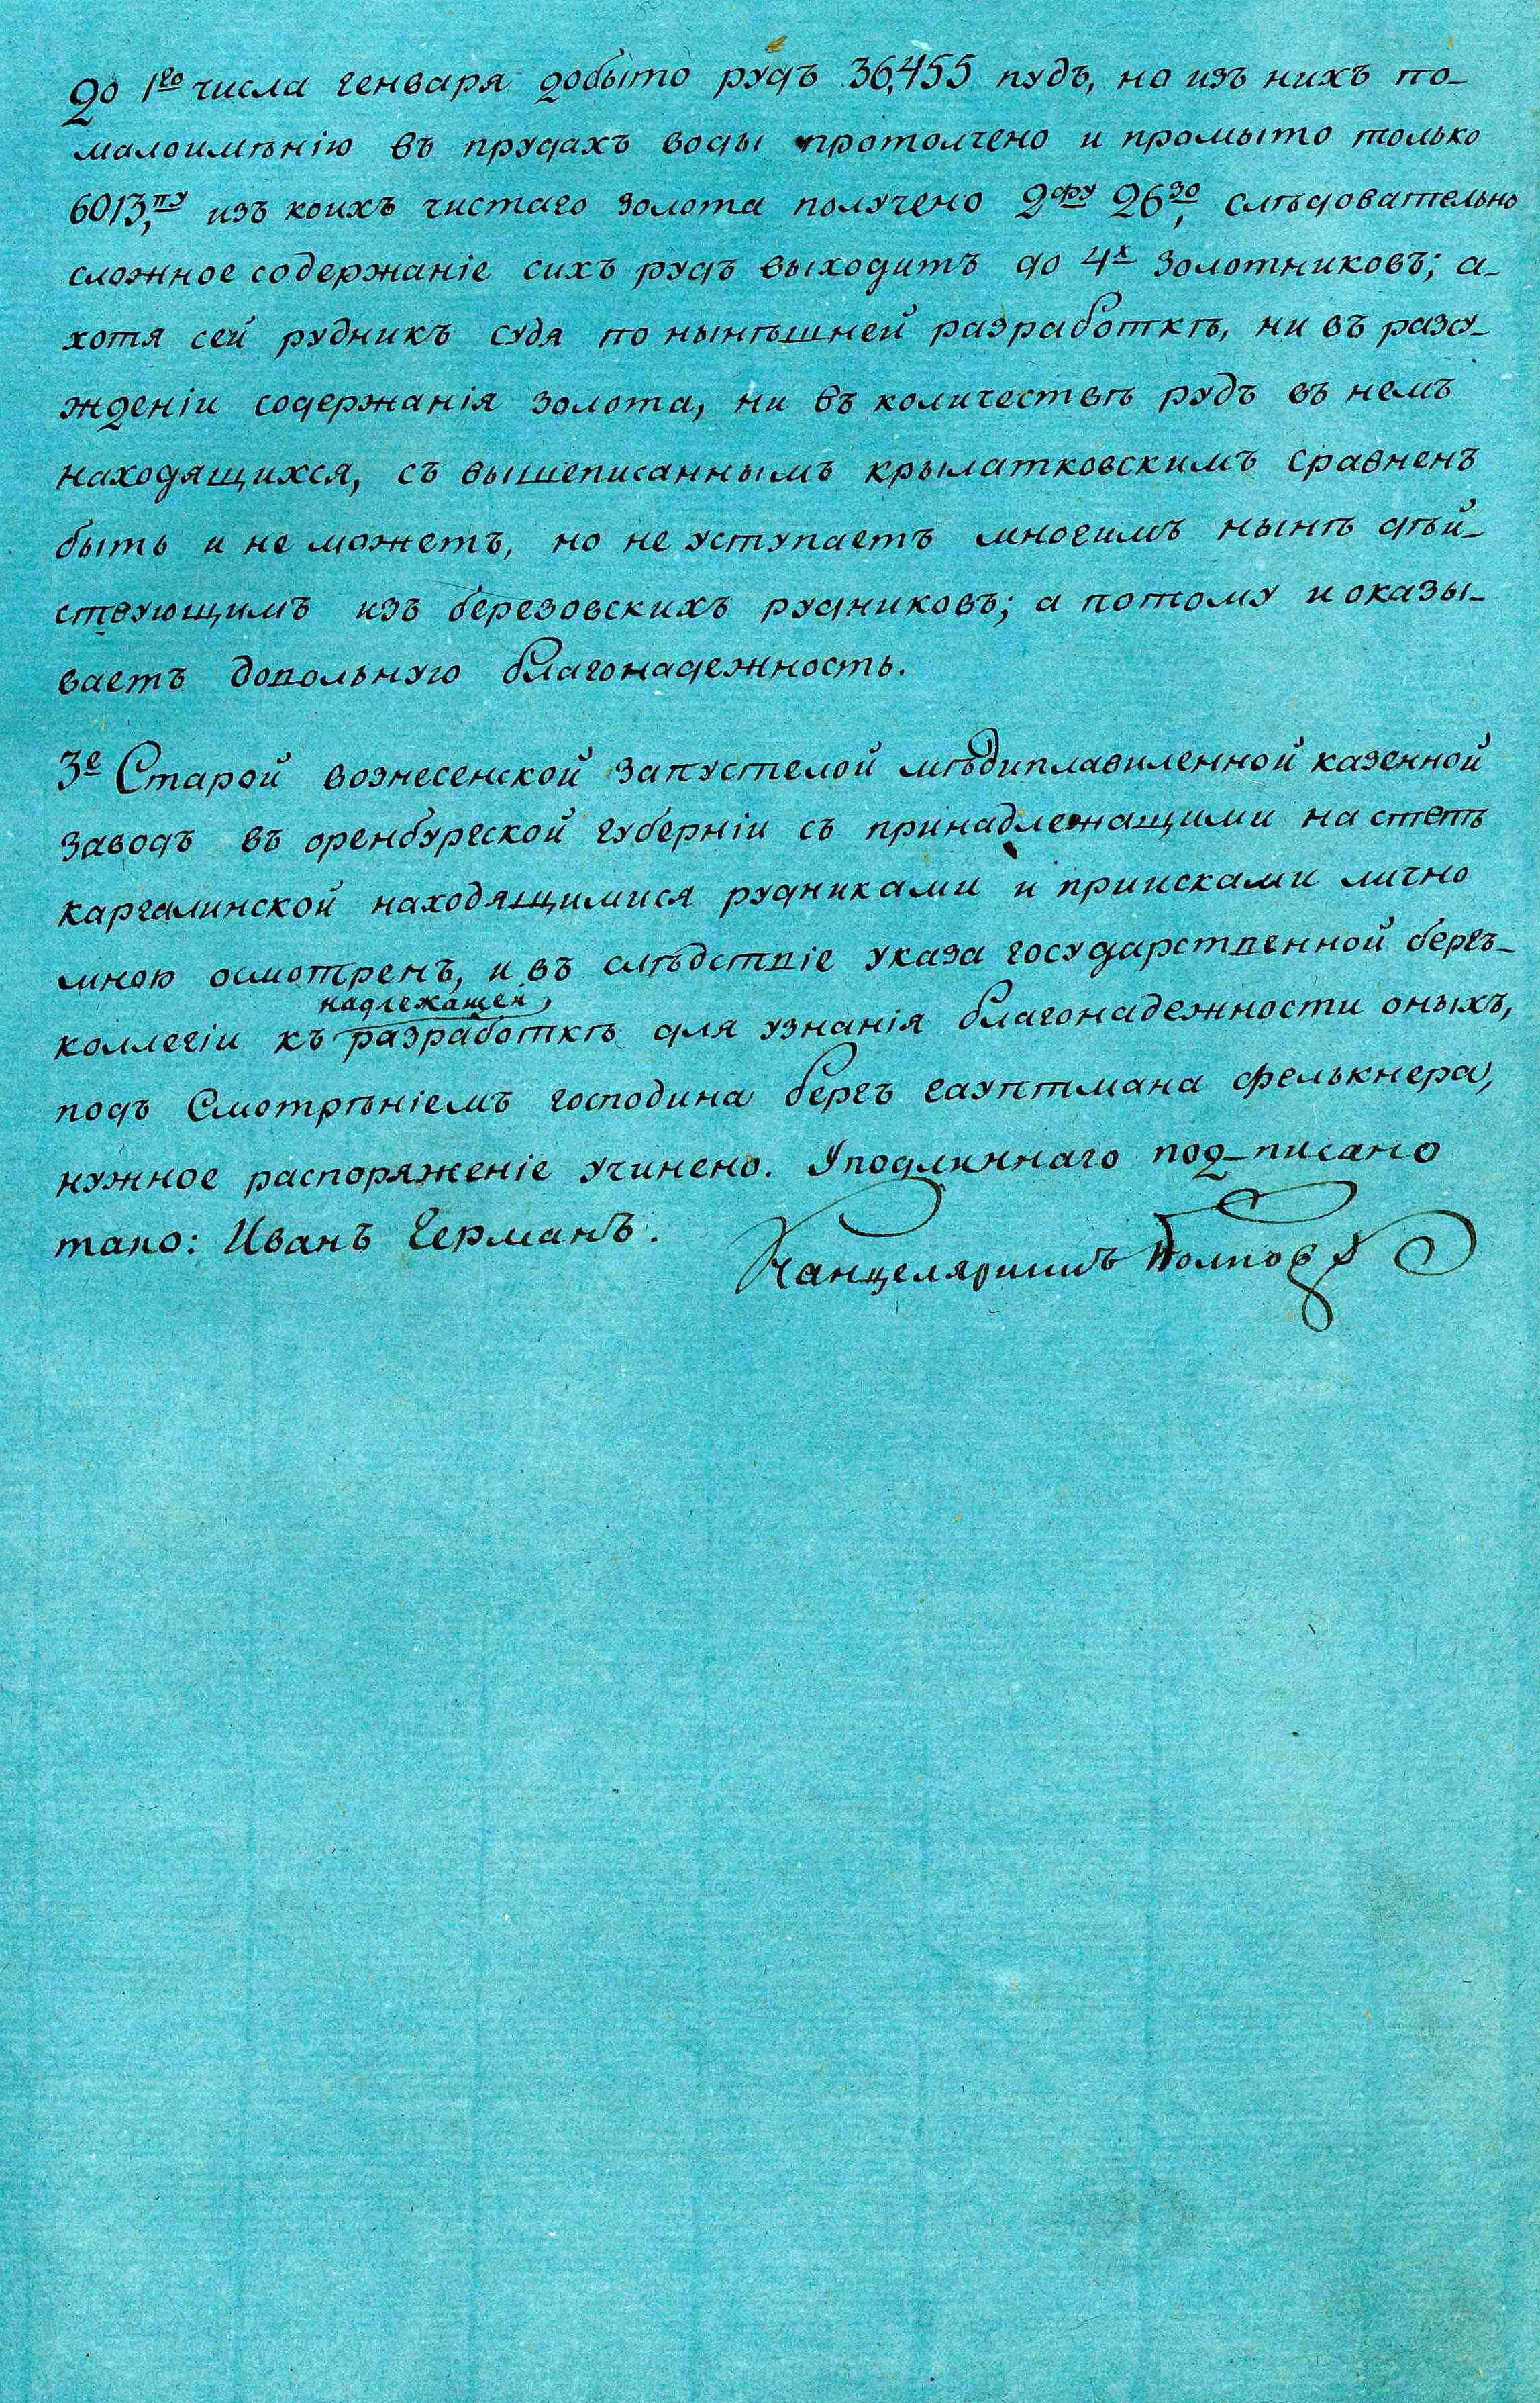 до 1го числа генваря добыто рудъ 36,455 пудъ, но изъ нихъ по-
малоимѣнію въ прудахъ воды протолчено и промыто только
6013,пу изъ коихъ чистаго золота получено 2фу 26,зо слѣдовательно
сложное содержаніе сихъ рудъ выходитъ до 4х золотниковъ; а-
хотя сей рудникъ судя по нынѣшней разработкѣ, ни въ разсу-
жденіи содержанія золота, ни въ количествѣ рудъ въ немъ
находящихся, съ вышеписаннымъ крылатковскимъ сравненъ
быть и не можетъ, но не уступаетъ многимъ нынѣ дѣй-
ствующимъ изъ березовскихъ рудниковъ; а потому и оказы-
ваетъ довольную благонадежность.
3е Старой вознесенской запустелой мѣдиплавиленной казенной
заводъ въ оренбургской губерніи съ принадлежащими на степѣ
каргалинской находящимися рудниками и приисками лично
мною осмотренъ, и въ слѣдствіе указа государственной бергъ-
надлежащей
коллегіи къ разработкѣ для узнанія благонадежности оныхъ,
подъ Смотрѣніемъ господина бергъ гауптмана фелькнера,
нужное распоряженіе учинено. Уподлиннаго под-писано
тако: Иванъ Германъ.
Канцеляристъ